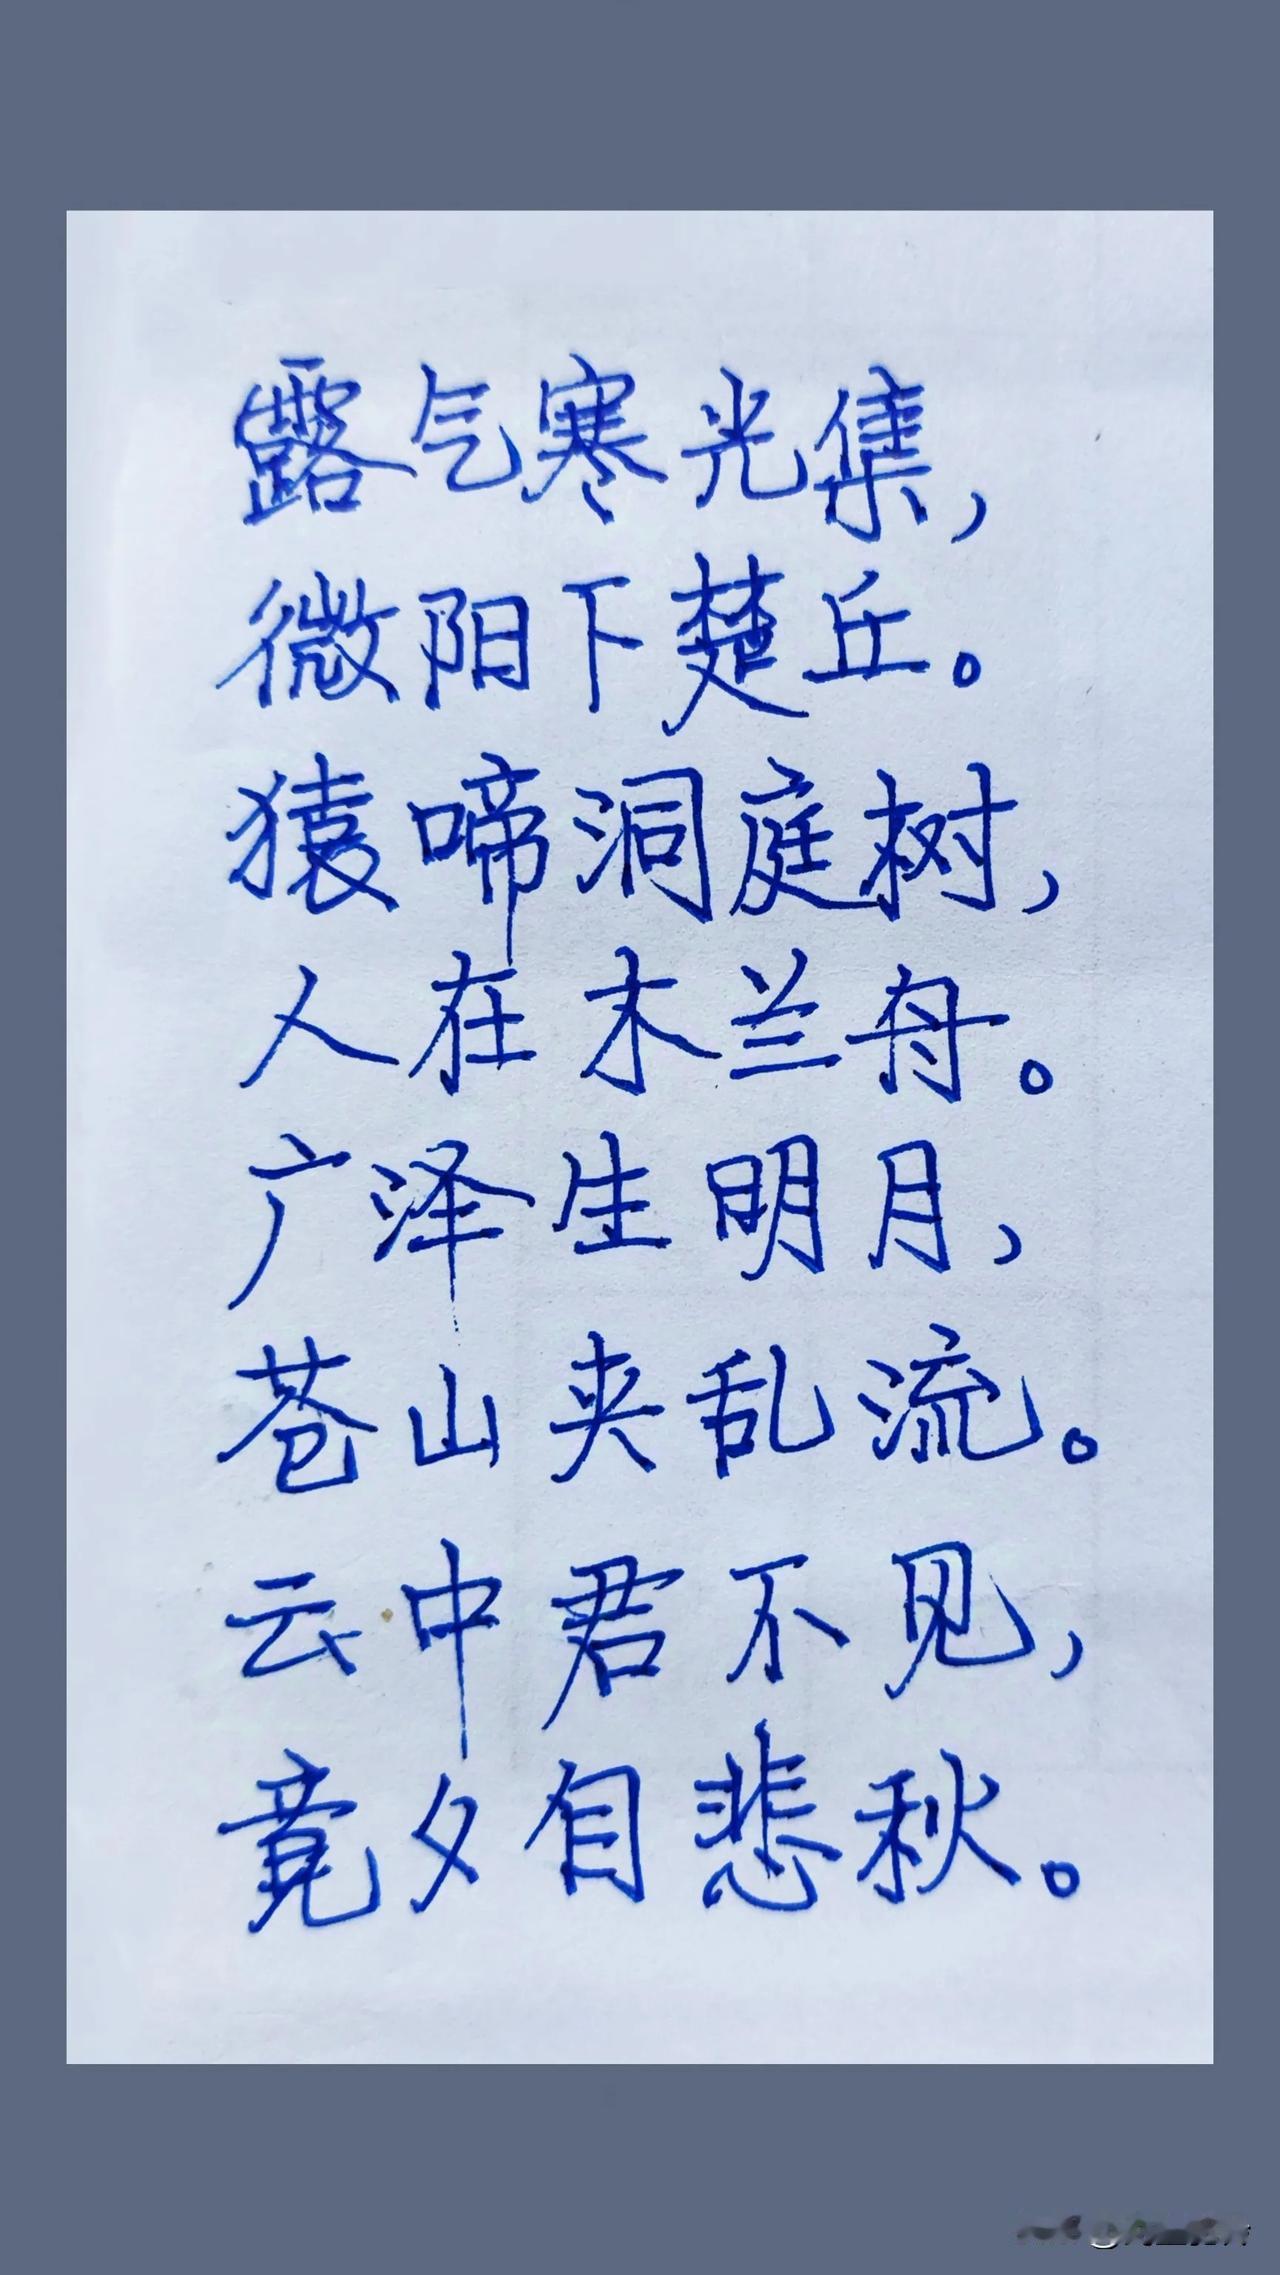 露气寒光集，
微阳下楚丘。
猿啼洞庭树，
人在木兰舟。
广泽生明月，
苍山夹乱流。
云中君不见，
竟夕自悲秋。